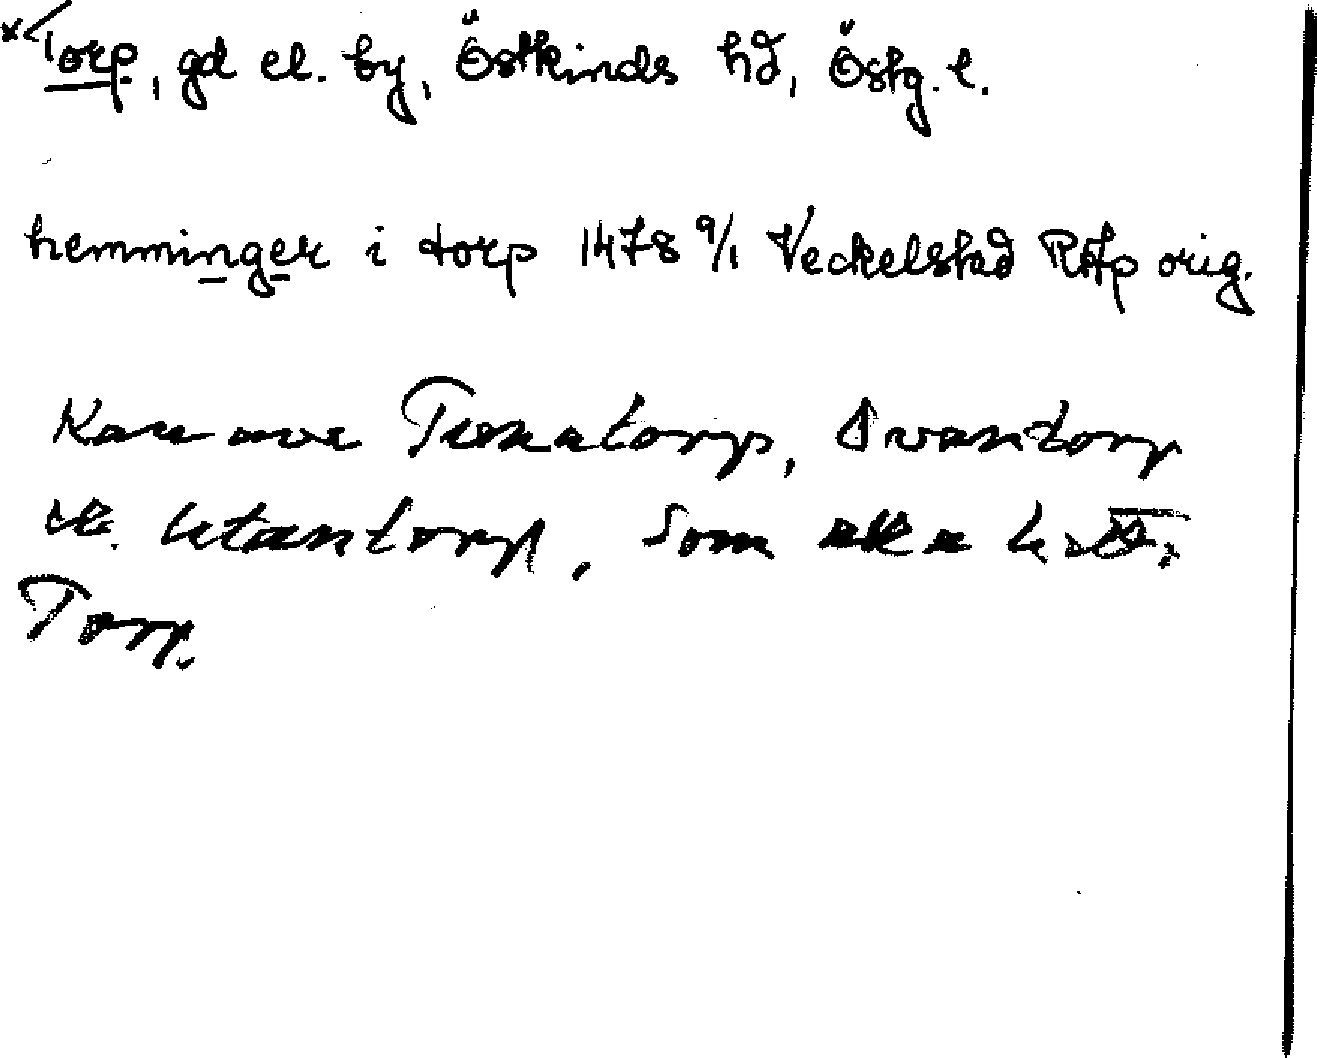 *Torp, gd el. by, Östkinds hd, Östg. l.
hemminger i torp 1478 9/1 Veckelstad RAp orig.
Kan avse Tunatorp, Svantorp
el. Utantorp, som alla hette
Torp.